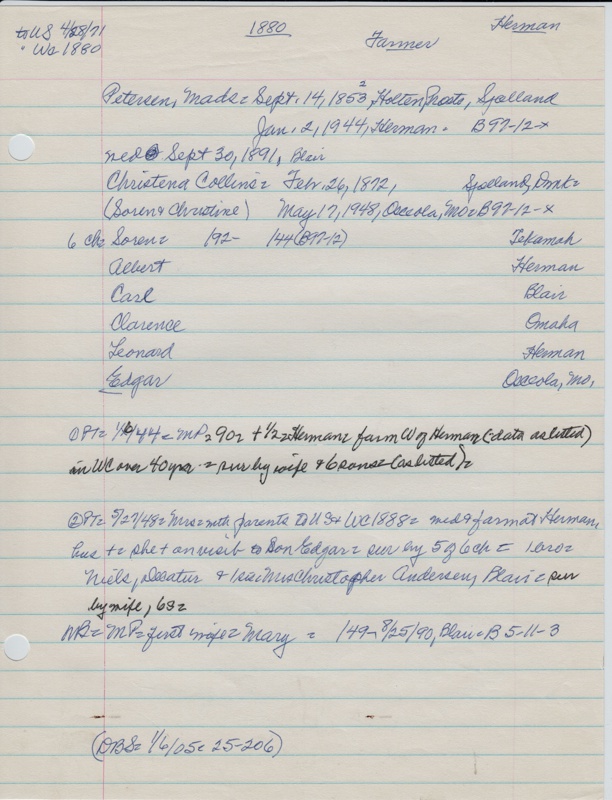 to US 4/28/71 1880 Herman
" Wc 1880 Farmer
Petersen, Mads = Sept. 14, 1853, 2 Holten, Proste, Sjelland
Jan. 2, 1944, Herman = B97-12-x
med Sept 30, 1891, Blair
Christena Collins = Feb. 26, 1872, Sjelland, Dmk =
(Soren & Christine) May 17, 1948, Osceola, Mo = B97-12-x
6 ch = Soren = 192- 144 (B97-12) Tekamah
Albert Herman
Carl Blair
Clarence Omaha
Leonard Herman
Edgar Osceola, Mo,
① PT = 1/6/44 = MP = 90 = + 1/2 = Herman = farm W of Herman (-data as listed)
in WC over 40 yrs = sur by wife & 6 sons = (as listed) =
② PT = 5/27/48 = Mrs = with parents to US & WC 1888 = med & farm at Herman,
hus + = she + on visit to Son Edgar = sur by 5 of 6 ch = 1 bro =
Niels, Decatur & 1 sis = Mrs Christopher Andersen, Blair = sur
by wife, 6s =
NB = MP = first wife = Mary = 149- 8/25/90, Blair = B 5-11-3
(DBS = 1/6/05 = 25-206)